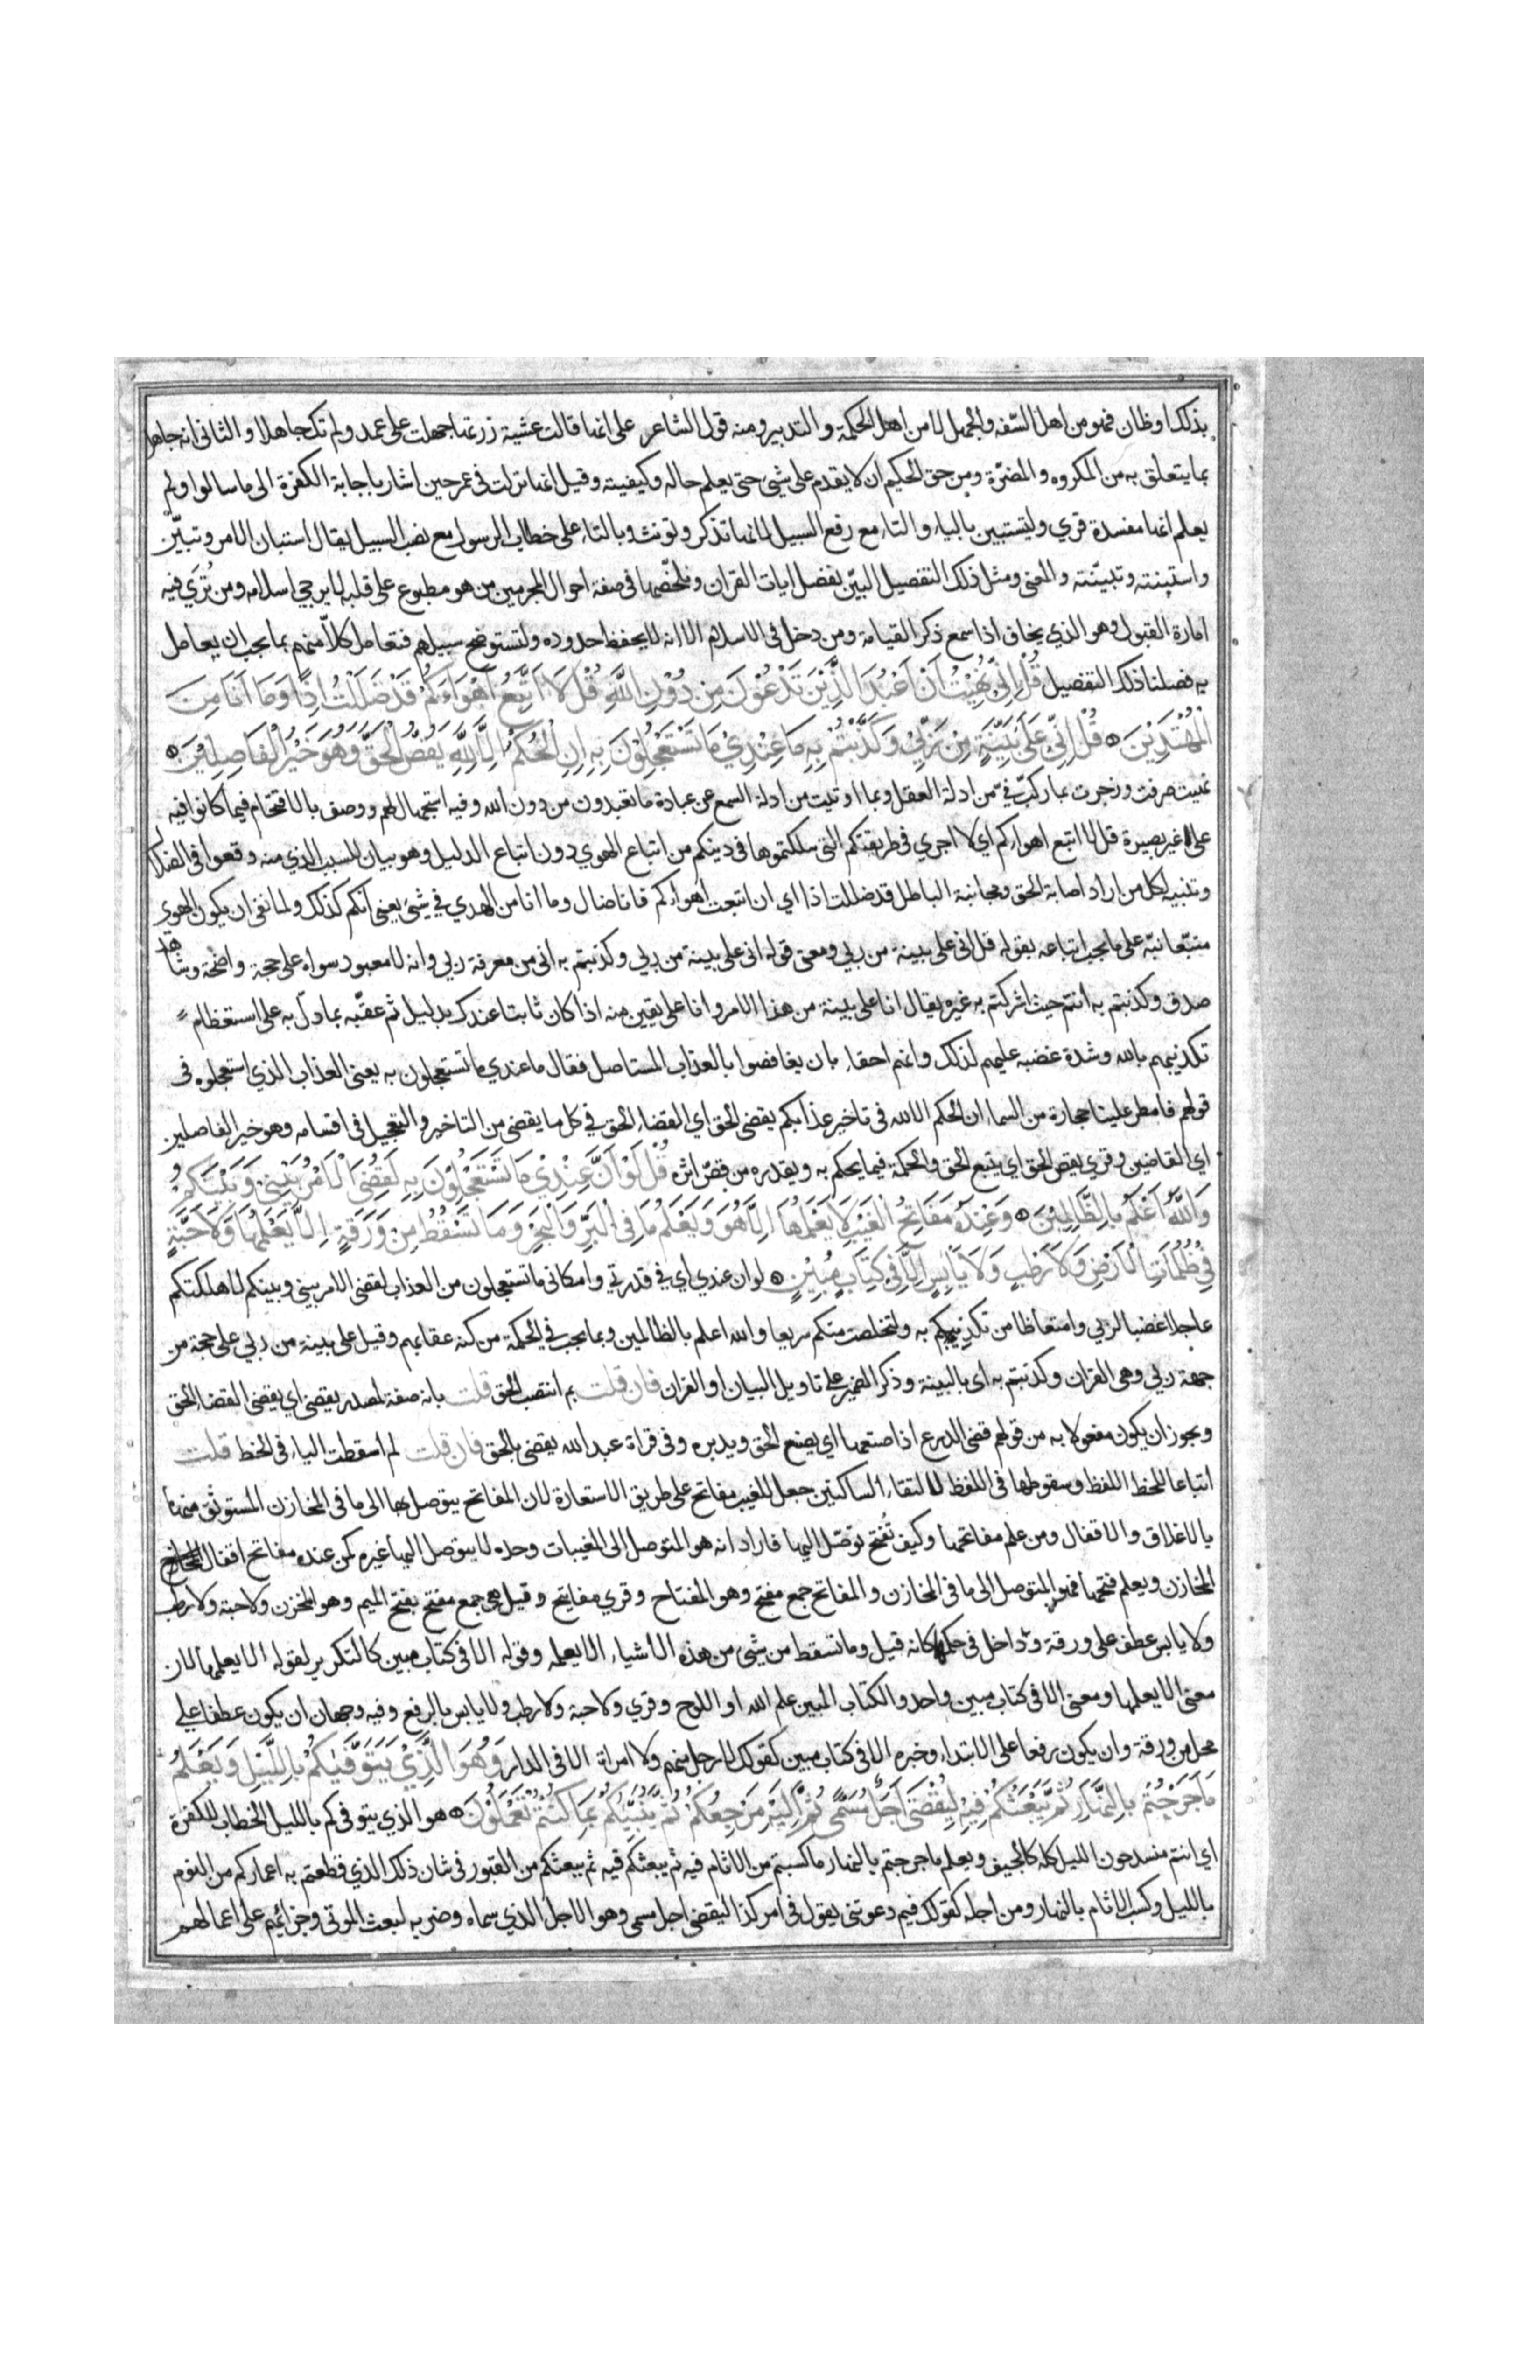 بذلك او ظان فهو من اهل السّفه والجهل لا من اهل الحكمة والتدبير ومنه قول الشاعر على انها قالت عشية زرتها جهلت على عمد ولم تك جاهلا والثانى انه جاهل
بما يتعلق به من المكروه والمضرّة ومن حق الحكيم ان لا يقدم على شىء حتى يعلم حاله وكيفيته وقيل انها نزلت فى عمر حين اشار باجابة الكفرة الى ما سالوا ولم
يعلم انها مفسدة قري وليتستبين بالياء والتاء مع رفع السبيل لانها تذكر وتونث وبالتاء على خطاب الرسول مع نصب السبيل يقال استبان الامر وتبيّن
واستبنته وتبيّنته والمعنى ومثل ذلك التفصيل البيّن نفصل ايات القران ونلخّصها فى صفة احوال المجرمين من هو مطبوع على قلبه لا يرجي اسلامه ومن نُري فيه
امارة القبول وهو الذي يخاف اذا سمع ذكر القيامة ومن دخل فى الاسلام الا انه لا يحفظ حدوده ولتستوضح سبيلهم فتعامل كلاّ منهم بما يجب ان يعامل
به فصلنا ذلك التفصيل قُلْ اِنِّى نُهِيْتُ اَنْ اَعْبُدَ الَّذِيْنَ تَدْعُوْنَ مِنْ دُوْنِ اللّٰهِ قُلْ لَا اَتَّبِعُ اَهْوَاءَكُمْ قَدْ ضَلَلْتُ اِذًا وَمَا اَنَا مِنَ
الْمُهْتَدِيْنَ قُلْ اِنِّى عَلَى بَيِّنَةٍ مِنْ رَبِّيْ وَكَذَّبْتُمْ بِهِ مَا عِنْدِيْ مَا تَسْتَعْجِلُوْنَ بِهِ اِنِ الْحُكْمُ اِلَّا لِلّٰهِ يَقُصُّ الْحَقَّ وَهُوَ خَيْرُ الْفَاصِلِيْنَ
نهيت صرفت وزجرت بما ركّب فيّ من ادلة العقل وبما اوتيت من ادلة السمع عن عبادة ما تعبدون من دون الله وفيه استجهال لهم ووصف بالاقتحام فيما كانوا فيه
على غير بصيرة قل لا اتبع اهواءكم اي لا اجري فى طريقتكم التى سلكتموها فى دينكم من اتباع الهوي دون اتباع الدليل وهو بيان للسبب الذي منه وقعوا فى الضلال
وتنبيه لكل من اراد اصابة الحق ومجانبة الباطل قد ضللت اذا اي ان اتبعت اهواءكم فانا ضال وما انا من الهدي فى شىء يعنى انكم كذلك ولما نفى ان يكون الهوى
متبّعا نبّه على ما يجب اتباعه بقوله قل انى على بينة من ربي ومعنى قوله انى على بينة من ربي وكذبتم به انى من معرفة ربي وانه لا معبود سواه على حجة واضحة وشاهد
صدق وكذبتم به انتم حيث اشركتم به غيره يقال انا على بينة من هذا الامر وانا على يقين منه اذا كان ثابتا عندك بدليل ثم عقّبه بما دلّ به على استعظام
تكذيبهم بالله وشدة غضبه عليهم لذلك وانهم احقاء بان يغافصوا بالعذاب المستاصل فقال ما عندي ما تستعجلون به يعنى العذاب الذي استعجلوه فى
قولهم فامطر علينا حجارة من السماء ان الحكم الا لله فى تاخير عذابكم يقضى الحق اي القضاء الحق فى كل ما يقضى من التاخير والتعجيل فى اقسامه وهو خير الفاصلين
اي القاضين وقري يقص الحق اي يتبع الحق والحكمة فيما يحكم به ويقدره من قصّ اثره قُلْ لَوْ اَنَّ عِنْدِيْ مَا تَسْتَعْجِلُوْنَ بِهِ لَقُضِىَ الْاَمْرُ بَيْنِىْ وَبَيْنَكُمْ
وَاللّٰهُ اَعْلَمُ بِالظَّالِمِيْنَ وَعِنْدَهُ مَفَاتِحُ الْغَيْبِ لَا يَعْلَمُهَا اِلَّا هُوَ وَيَعْلَمُ مَا فِى الْبَرِّ وَالْبَحْرِ وَمَا تَسْقُطُ مِنْ وَرَقَةٍ اِلَّا يَعْلَمُهَا وَلَا حَبَّةٍ
فِيْ ظُلُمَاتِ الْاَرْضِ وَلَا رَطْبٍ وَلَا يَابِسٍ اِلَّا فِى كِتَابٍ مُبِيْنٍ لو ان عندي اي فى قدرتي وامكانى ما تستعجلون من العذاب لقضى الامر بينى وبينكم لاهلكتكم
عاجلا غضبا لربي وامتعاظا من تكذيبكم به ولتخلصت منكم سريعا والله اعلم بالظالمين وبما يجب فى الحكمة من كنه عقابهم وقيل على بينة من ربي على حجة من
جهة ربي وهى القران وكذبتم به اى بالبينة وذكر الضمير على تاويل البيان او القران فان قلت بم انتصب الحق قلت بانه صفة لمصدر يقضى اي يقضى القضا الحق
ويجوز ان يكون مفعولا به من قولهم قضى الدرع اذا صنعها اي يصنع الحق ويدبره وفى قراة عبد الله يقضى بالحق فان قلت لم اسقطت الياء فى الخط قلت
اتباعا للخط اللفظ وسقوطها فى اللفظ لالتقاء الساكنين جعل للغيب مفاتح على طريق الاستعارة لان المفاتح يتوصل بها الى ما فى المخازن المستوثق منها
بالاغلاق والاقفال ومن علم مفاتحها وكيف تُفتح توصّل اليها فاراد انه هو المتوصل الى المغيبات وحده لا يتوصل اليها غيره كمن عنده مفاتح اقفال
المخازن ويعلم فتحها فهو المتوصل الى ما فى المخازن والمفاتح جمع مفتح وهو المفتاح وقري مفاتيح وقيل هى جمع مفتح بفتح الميم وهو المخزن ولا حبة ولا رطب
ولا يابس عطف على ورقة وداخل فى حكمها كانه قيل وما تسقط من شىء من هذه الأشياء الا يعلمه وقوله الا فى كتاب مبين كالتكرير لقوله الا يعلمها لان
معنى الا يعلمها ومعنى الا فى كتاب مبين واحد والكتاب المبين علم الله او اللوح وقري ولا حبة ولا رطب ولا يابس بالرفع وفيه وجهان ان يكون عطفا على
محل من ورقة وان يكون رفعا على الابتداء وخبره الا فى كتاب مبين كقولك لا رجل منهم ولا امراة الا فى الدار وَهُوَ الَّذِيْ يَتَوَفَّيٰكُمْ بِاللَّيْلِ وَيَعْلَمُ
مَا جَرَحْتُمْ بِالنَّهَارِ ثُمَّ يَبْعَثُكُمْ فِيْهِ لِيُقْضَى اَجَلٌ مُسَمًّى ثُمَّ اِلَيْهِ مَرْجِعُكُمْ ثُمَّ يُنَبِّئُكُمْ بِمَا كُنْتُمْ تَعْمَلُوْنَ هو الذي يتوفىكم بالليل الخطاب للكفرة
اي انتم منسدحون الليل كله كالجيف ويعلم ما جرحتم بالنهار ما كسبتم من الاثام فيه ثم يبعثكم فيه ثم يبعثكم من القبور فى شان ذلك الذي قطعتم به اعماركم من النوم
بالليل وكسب الاثام بالنهار ومن اجله كقولك فيم دعوتنى يقول فى امر كذا ليقضى اجل مسمى وهو الاجل الذي سماه وضربه لبعث الموتى وجزائهم على اعمالهم